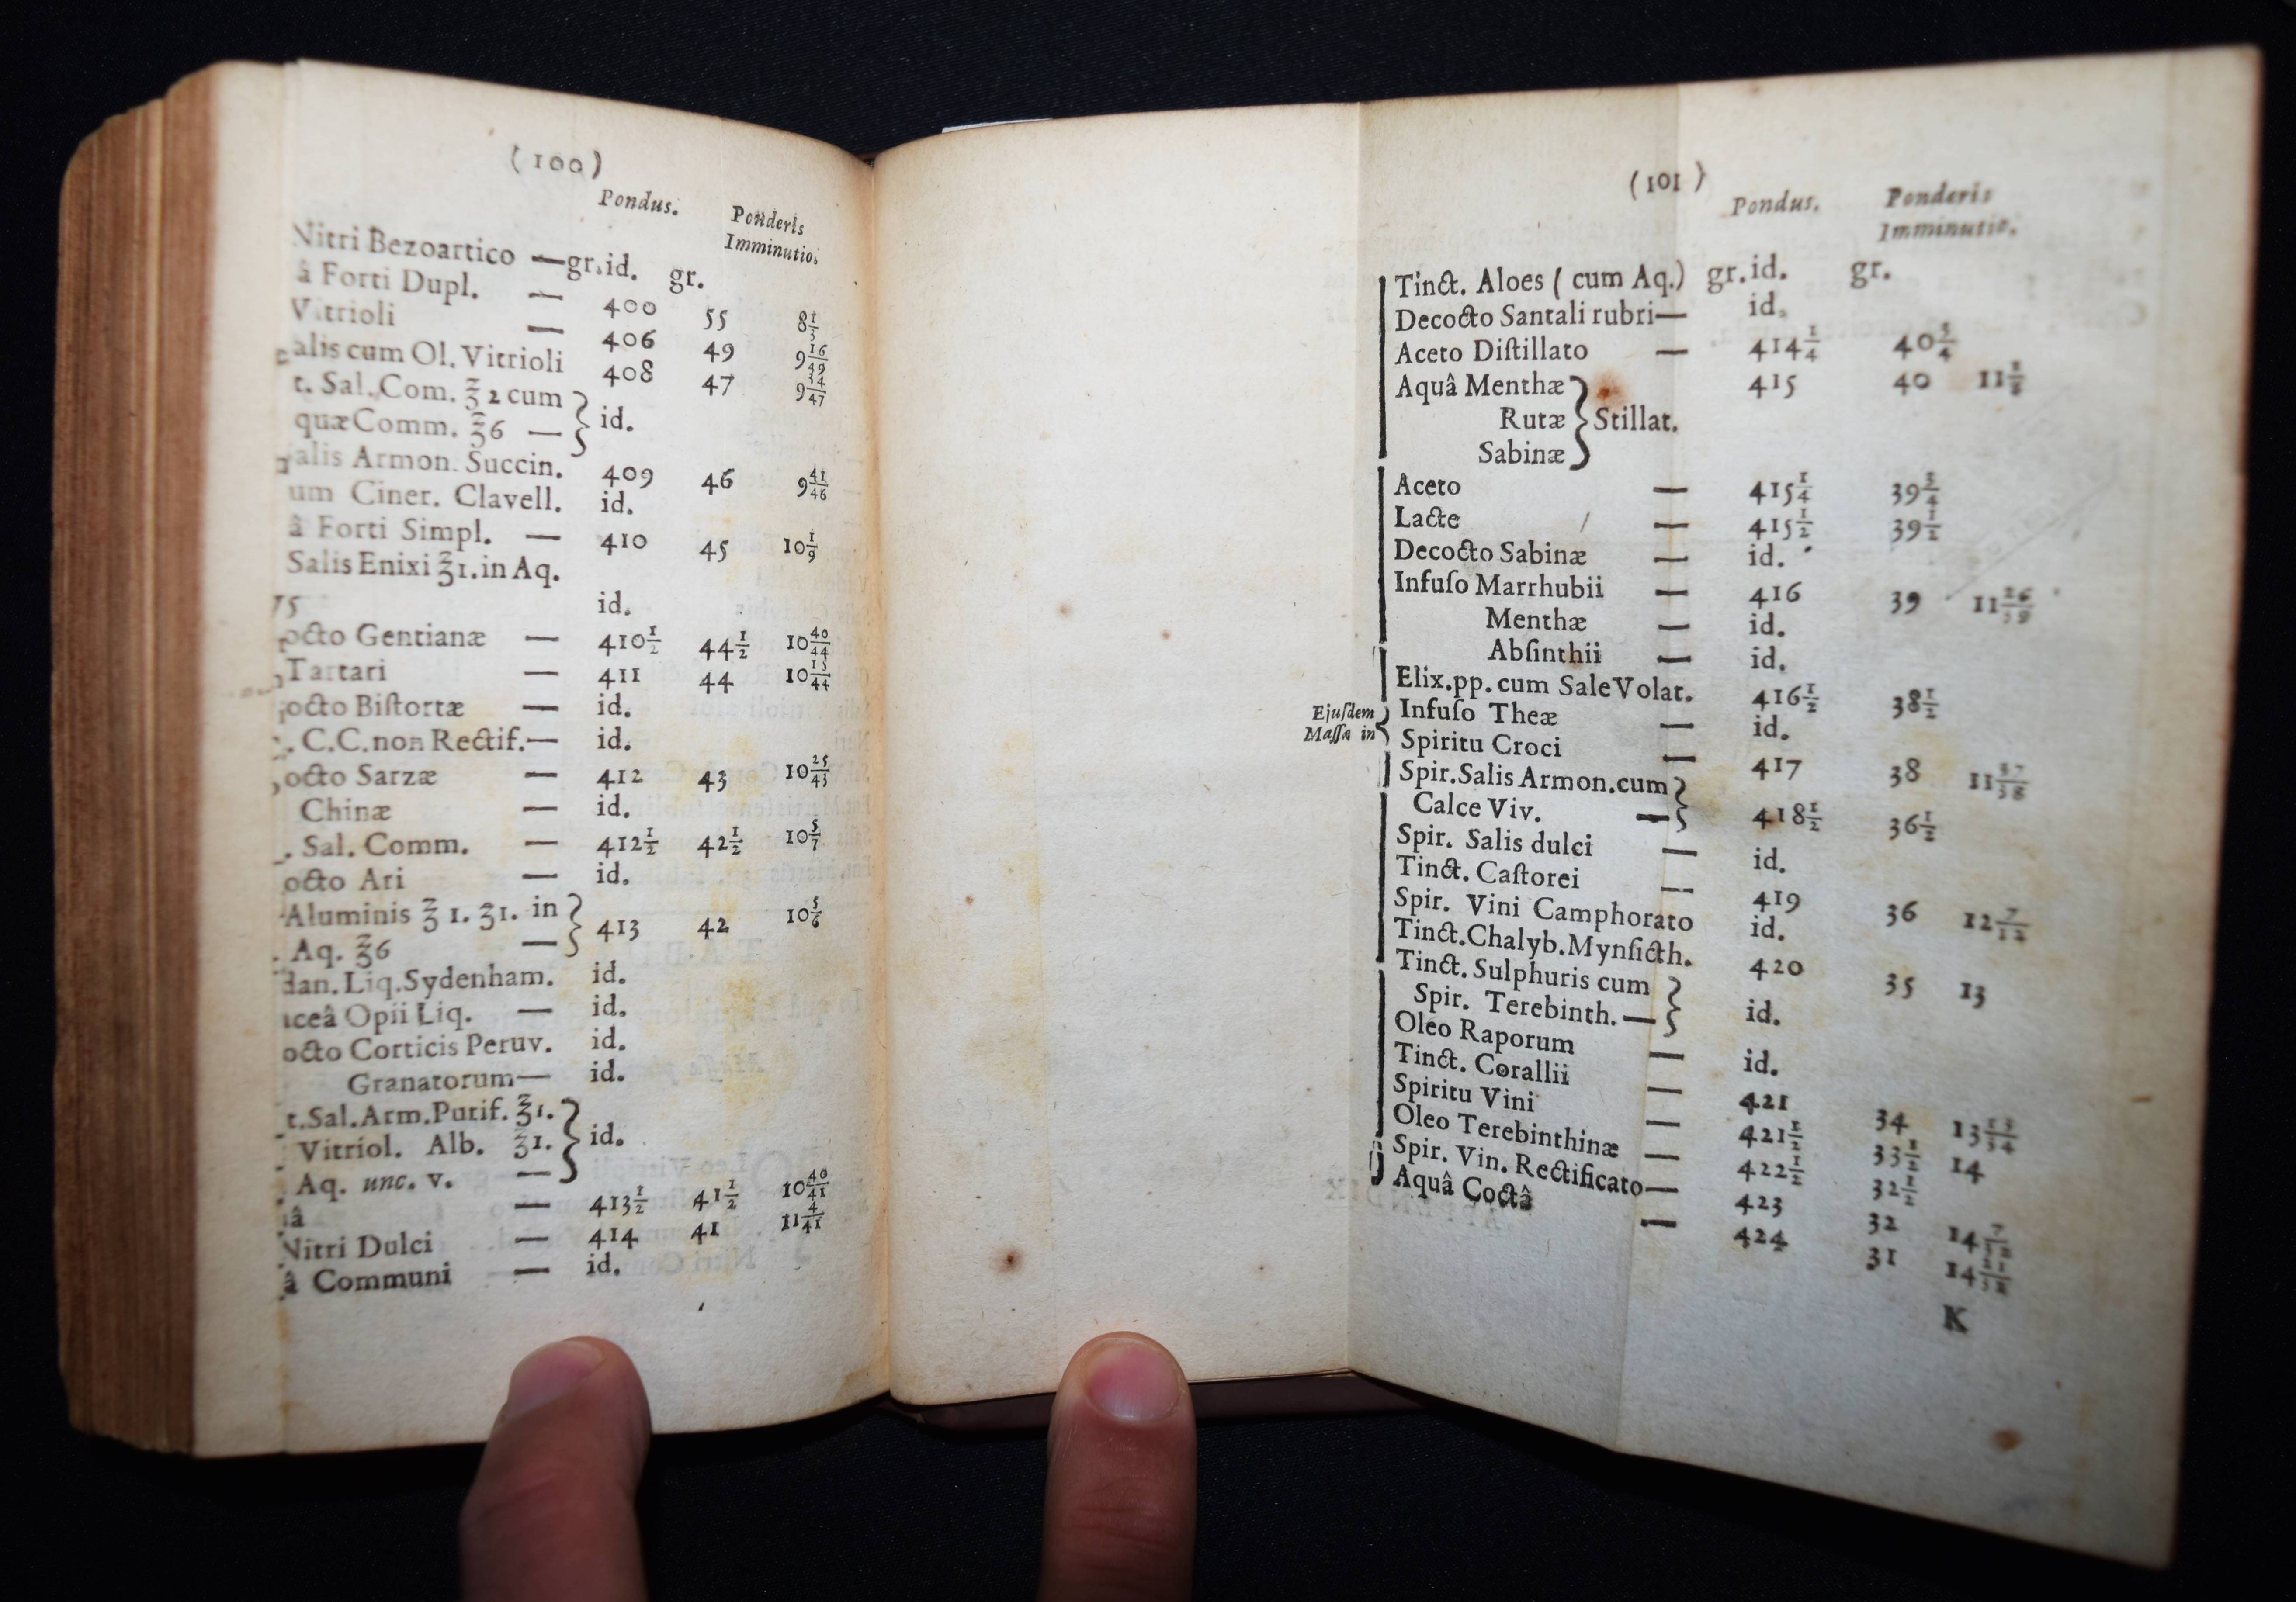 (100)
Pondus. Ponderis
Imminutio.
Nitri Bezoartico — gr. id. gr.
â Forti Dupl. — 400 55 8 1/3
Vitrioli — 406 49 9 16/49
alis cum Ol. Vitrioli 408 47 9 34/47
t. Sal. Com. ℥ 2 cum
quæ Comm. ℥6 — } id.
alis Armon. Succin. 409 46 9 41/46
um Ciner. Clavell. id.
â Forti Simpl. — 410 45 10 1/9
Salis Enixi ʒ1. in Aq.
ʒ5 id.
octo Gentianæ — 410 1/2 44 1/2 10 40/44
Tartari — 411 44 10 15/44
octo Biſtortæ — id.
. C.C. non Rectif. — id.
octo Sarzæ — 412 43 10 25/43
Chinæ — id.
. Sal. Comm. — 412 1/2 42 1/2 10 5/7
octo Ari — id.
Aluminis ℥ 1. ʒ1. in
. Aq. ℥6 — } 413 42 10 5/6
dan. Liq. Sydenham. id.
aceâ Opii Liq. — id.
octo Corticis Peruv. id.
Granatorum — id.
t. Sal. Arm. Purif. ʒ1.
Vitriol. Alb. ʒ1. } id.
Aq. unc. v. —
â — 413 1/2 41 1/2 10 40/41
Nitri Dulci — 414 41 11 4/41
â Communi — id.
(101)
Pondus. Ponderis
Imminutio.
Tinct. Aloes ( cum Aq.) gr. id. gr.
Decocto Santali rubri — id.
Aceto Diſtillato — 414 1/4 40 3/4
Aquâ Menthæ 415 40 11 3/8
Rutæ } Stillat.
Sabinæ
Aceto — 415 1/4 39 3/4
Lacte — 415 1/2 39 1/2
Decocto Sabinæ — id.
Infuſo Marrhubii — 416 39 11 26/39
Menthæ — id.
Abſinthii — id.
Elix. pp. cum Sale Volat. 416 1/2 38 1/2
Ejuſdem
Maſſa in
Infuſo Theæ — id.
Spiritu Croci — 417 38 11 37/38
Spir. Salis Armon. cum
Calce Viv. — } 418 1/2 36 1/2
Spir. Salis dulci — id.
Tinct. Caſtorei — 419 36 12 7/12
Spir. Vini Camphorato id.
Tinct. Chalyb. Mynſicth. 420 35 13
Tinct. Sulphuris cum
Spir. Terebinth. — } id.
Oleo Raporum — id.
Tinct. Corallii — 421 34 13 13/34
Spiritu Vini — 421 1/2 33 1/2 14
Oleo Terebinthinæ — 422 1/2 32 1/2
Spir. Vin. Rectificato — 423 32 14 7/32
Aquâ Coctâ — 424 31 14
K